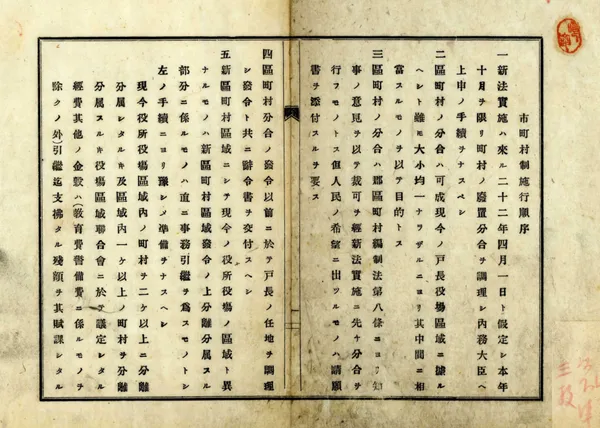 市町村制施行順序
一新法實施ハ來ル二十二年四月一日ト假定シ本年
十月ヲ限リ町村ノ廢置分合ヲ調理シ內務大臣ヘ
上申ノ手續ヲナスベシ
二區町村ノ分合ハ可成現今ノ戶長役場區域ニ據ル
ヘシト雖モ大小均一ナラザルニヨリ其中間ニ相
當スルモノヲ以テ目的トス
三區町村ノ分合ハ郡區町村編制法第八條ニヨリ知
事ノ意見ヲ以テ裁可ヲ經新法實施ニ先ケ分合ヲ
行フモノトス但人民ノ希望ニ出ツルモノハ請願
書ヲ添付スルヲ要ス
四區町村分合ノ發令以前ニ於テ戶長ノ任地ヲ調理
シ發令ト共ニ辭令書ヲ交付スヘシ
五新區町村區域ニシテ現今ノ役所役場ノ區域ト異
ナルモノハ新區町村區域發令ノ上分離分属スル
部分ニ係ルモノハ直ニ事務引繼ヲ爲スモノトシ
左ノ手續ニヨリ豫シメ準備ヲナスヘシ
現今役所役場區域內ノ町村ヲ二ケ以上ニ分離
分属シタルキ及區域內一ケ以上ノ町村ヲ分離
分属スルキ役場區域聯合會ニ於テ議定シタル
經費其他ノ金穀ハ(教育費警備費ニ係ルモノヲ
除クノ外)引繼迄支拂タル殘額ヲ其賦課シタル